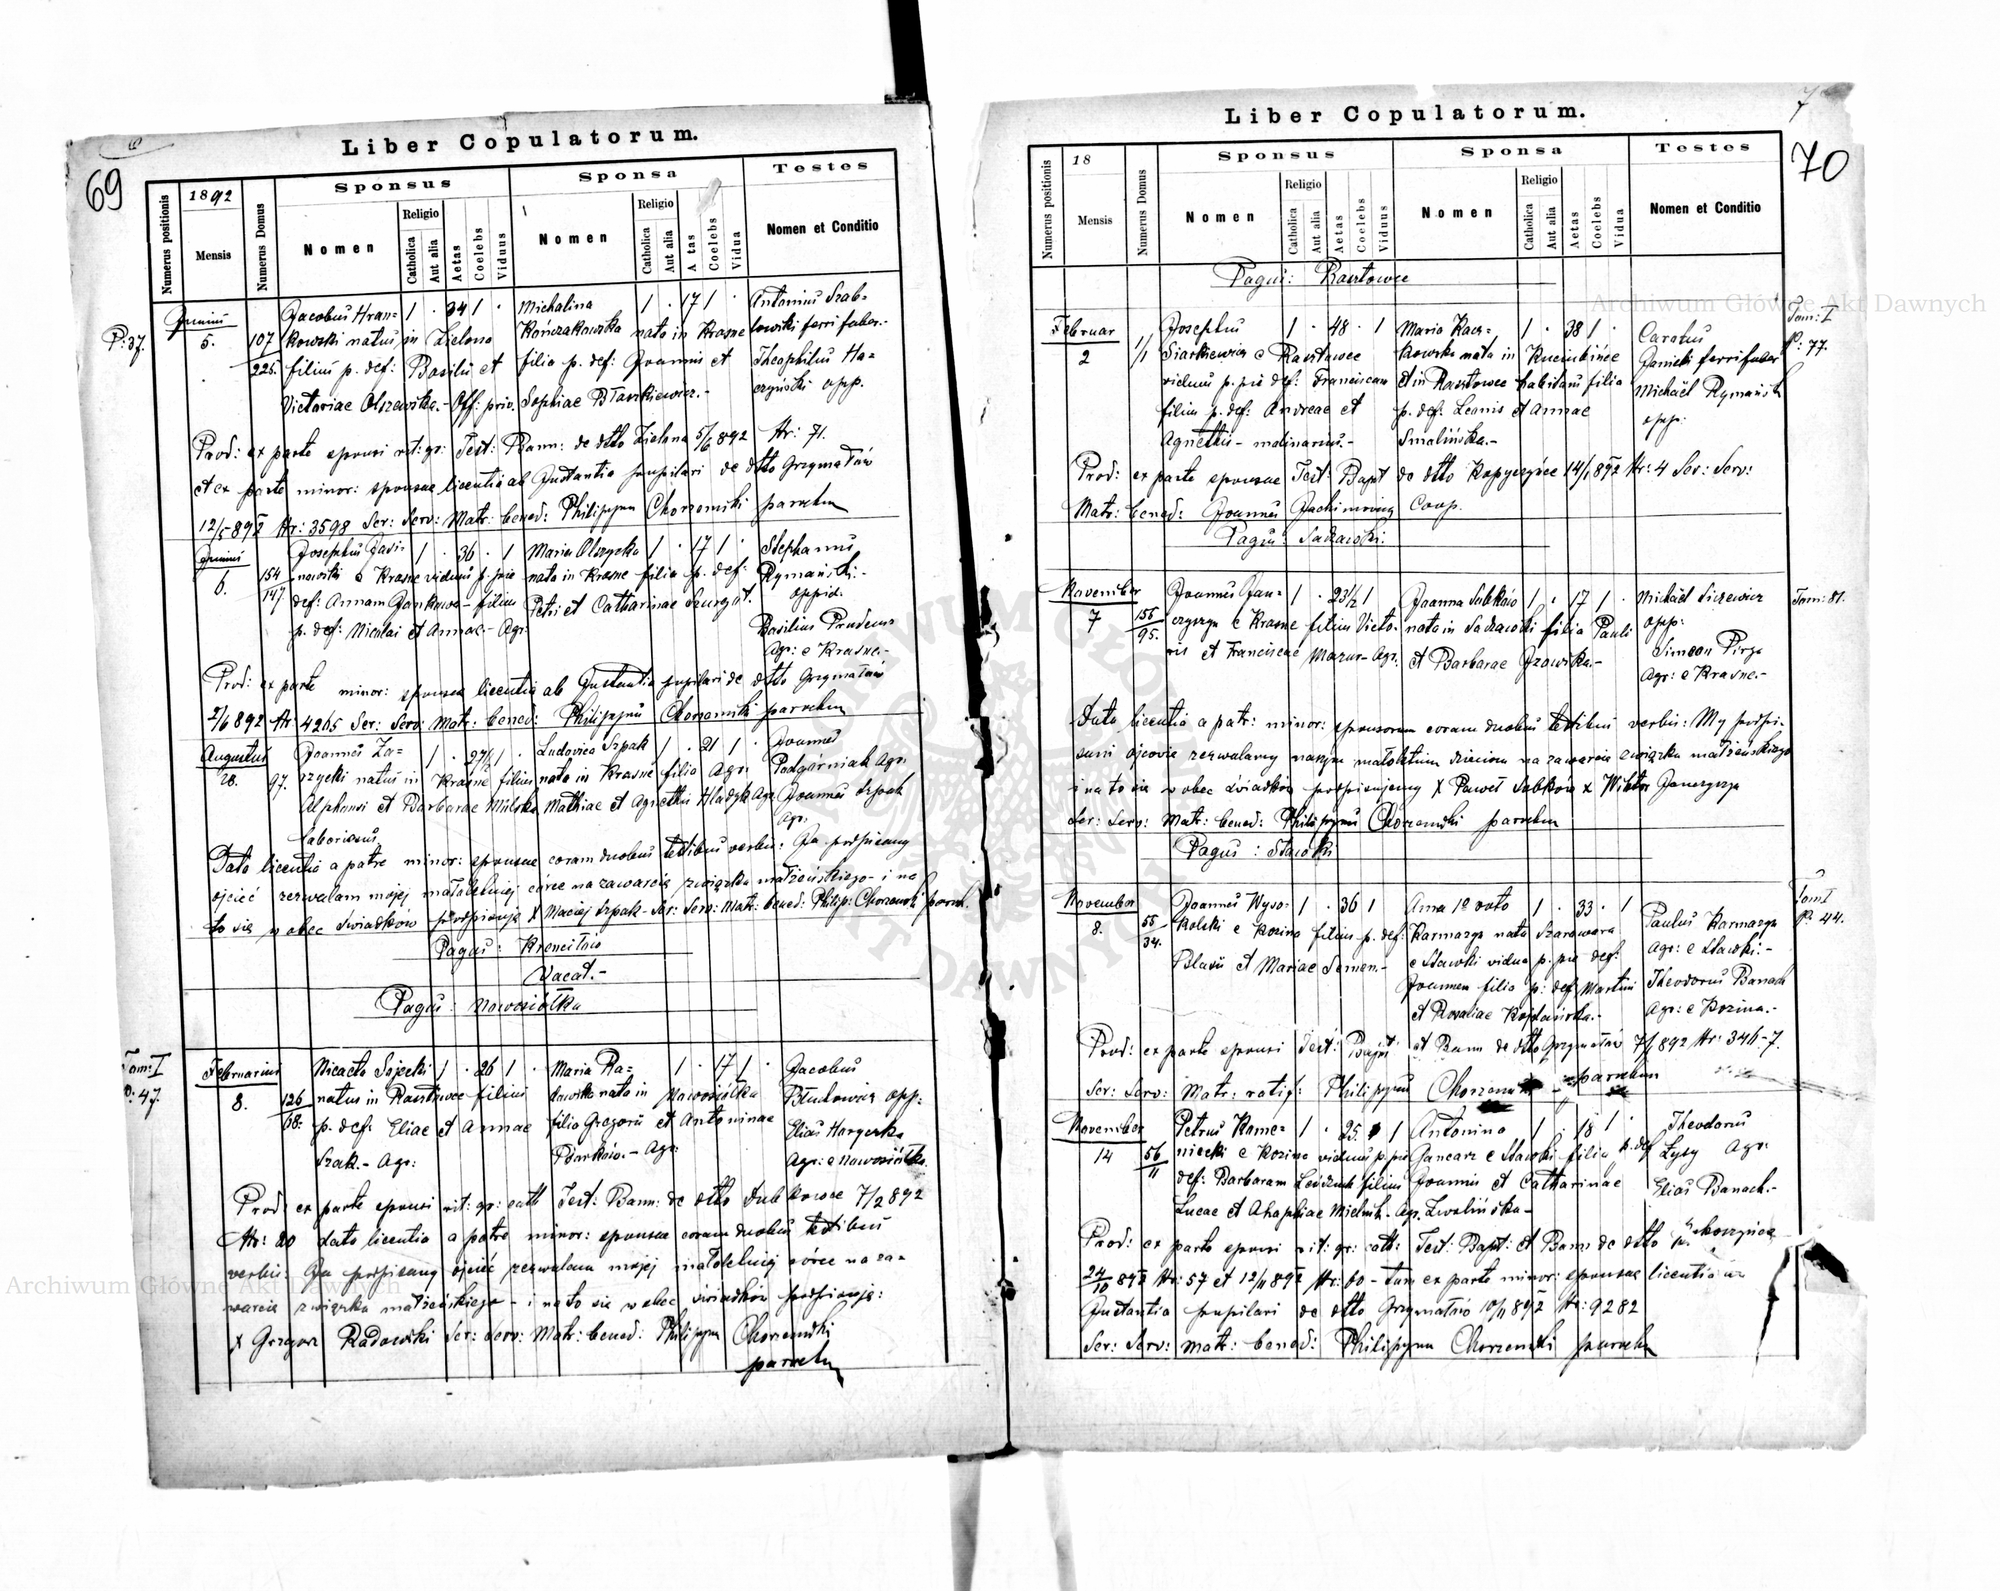 Liber Copulatorum.
69
Numerus positionis
1892
Mensis
Numerus Domus
Sponsus
Nomen
Religio
Catholica
Aut alia
Aetas
Coelebs
Viduus
Sponsa
Nomen
Religio
Catholica
Aut alia
Aetas
Coelebs
Vidua
Testes
Nomen et Conditio
P: 37.
Junius
5.
107
225.
Jacobus Hran=
kowski natus in Zielona
filius p. def: Basilii et
Victoriae Olszewska.- Off: priv.
1 . 34 1 .
Michalina
Kończakowska nata in Krasne
filia p. def: Joannis et
Sophiae Błaszkiewicz.-
1 . 17 1 .
Antonius Szab=
lowski ferri faber.-
Theophilus Ha=
czyński opp.
Prod: ex parte sponsi rit: gr: Test: Bann: de dtto Zielona 5/6 892 Nr: 71.
et ex parte minor: sponsae licentia ab Instantia pupilari de dtto Grzymałów
12/5 892 Nr: 3598 Ser: Serv: Matr: bened: Philippus Chorzemski parochus
Junius
6.
154
147
Josephus
e Krasne viduus p. pie
def: Annam Jankowa - filius
p. def: Nicolai et Annae.- Agr:
1 . 36 . 1
Maria Olszycka
nata in Krasne filia p. def:
Petri et Catharinae Szurgot.
1 . 17 1 .
Stephanus
Rymański.-
oppid.
Basilius Prudeus
Agr: e Krasne.-
Prod: ex parte minor: sponsae licentia ab Instantia pupilari de dtto Grzymałów
2/6 892 Nr 4265 Ser: Serv: Matr: bened: Philippus Chorzemski parochus
Augustus
28.
97.
Joannes Za=
rzycki natus in Krasne filius
Alphonsi et Barbarae Milska
laboriosus
1 . 27½ 1 .
Ludovica Szpak
nata in Krasne filia Agr:
Mathiae et Agnethis Hladyk Agr.
1 . 21 1 .
Joannes
Podgórniak Agr:
Joannes Szpak
Agr:
Data licentia a patre minor: sponsae coram duobus testibus verbis: Ja podpisany
ojciec zezwalam mojej małoletniej córce na zawarcie związku małżeńskiego - i na
to się w obec świadków podpisuję X Maciej Szpak - Ser: Serv: Matr: bened: Philip: Chorzemski paroch.
Pagus: Krenciłów
Vacat.-
Pagus: Nowosiółka
Tom: I
P: 47.
Februarius
8.
126
68.
Nicetas Sojecki
natus in Rasztowce filius
p. def: Eliae et Annae
Szak.- Agr:
1 . 26 1 .
Maria Ra=
dowska nata in Nowosiółka
filia Gregorii et Antoninae
Barków.- Agr:
1 . 17 1 .
Jacobus
Błudowicz opp:
Elias Haryerka
Agr: e Nowosiółka.
Prod: ex parte sponsi rit: gr: cath Test: Bann: de dtto Dubkowce 7/2 892
Nr: 20 data licentia a patre minor: sponsae coram duobus testibus
verbis: Ja podpisany ojciec zezwalam mojej małoletniej córce na za=
warcie związku małżeńskiego - i na to się w obec świadków podpisuję:
X Grzegorz Radowski Ser: Serv: Matr: bened: Philippus Chorzemski
parochus
Liber Copulatorum.
7
70
Numerus positionis
18
Mensis
Numerus Domus
Sponsus
Nomen
Religio
Catholica
Aut alia
Aetas
Coelebs
Viduus
Sponsa
Nomen
Religio
Catholica
Aut alia
Aetas
Coelebs
Vidua
Testes
Nomen et Conditio
Pagus: Rasztowce
Tom: I
P: 77.
Februar
2
1/1
Josephus
Siarkiewicz e Rasztowce
viduus p. pie def: Franciscam
filius p. def: Andreae et
Agnethis - molinarius.-
1 . 48 . 1
Maria Kacz=
kowska nata in
et in Rasztowce habitans filia
p. def: Leonis et Annae
Smalińska.-
1 . 38 1 .
Carolus
Janicki ferri faber
Michaël Rymański
opp:
Prod: ex parte sponsae Test: Bapt de dtto Kopyczyńce 14/1 892 Nr: 4 Ser: Serv:
Matr: bened: Joannes Jachimowicz Coop.
Pagus: Sadzawki.
Tom: 81.
November
7
155
95.
Joannes Jan=
czyszyn e Krasne filius Victo=
ris et Franciscae Mazur - Agr.
1 . 23½ 1
Joanna Sabków
nata in Sadzawki filia Pauli
et Barbarae Izowska.-
1 . 17 1 .
Michaël Siczewicz
opp:
Simeon Pirga
Agr: e Krasne.-
Data licentia a patr: minor: sponsorum coram duobus testibus verbis: My podpi=
sani ojcowie zezwalamy naszym małoletnim dzieciom na zawarcie związku małżeńskiego
i na to się w obec świadków podpisujemy X Paweł Sabków x Wiktor Janczyszyn
Ser: Serv: Matr: bened: Philippus Chorzemski parochus
Pagus: Stawki
Tom I
P. 44.
November
8.
55
34.
Joannes Wyso=
kolski e Kozina filius p. def:
Blasii et Mariae Semen.-
1 . 36 1
Anna 1º voto
Karmazyn nata Szarawara
e Stawki vidua p. pie def:
Joannem filia p: def Martini
et Rosaliae Kojdańska.-
1 . 33 . 1
Paulus Karmazyn
Agr: e Stawki.-
Theodorus Banach
Agr: e Kozina.-
Prod: ex parte sponsi Test: Bapt et Bann de dtto Grzymałów 7/11 892 Nr: 346-7.
Ser: Serv: Matr: ratif: Philippus Chorzemski parochus
November
14
56
11
Petrus Kame=
niecki e Kozina viduus p. pie
def: Barbaram filius
Lucae et Ahaphiae Mielnik. Agr.
1 . 25. 1
Antonina
Gancarz e Stawki filia p. def
Joannis et Catharinae
Zwolińska -
1 . 18 1 .
Theodorus
Łysy Agr:
Elias Banach.-
Prod: ex parte sponsi rit: gr: cath: Test: Bapt: et Bann: de dtto
24/10 892 Nr: 57 et 12/11 892 Nr: 60 - tum ex parte minor: sponsae licentia ab
Instantia pupilari de dtto Grzymałów 10/11 892 Nr: 9282
Ser: Serv: Matr: bened: Philippus Chorzemski parochus
Archiwum Główne Akt Dawnych
Archiwum Główne Akt Dawnych